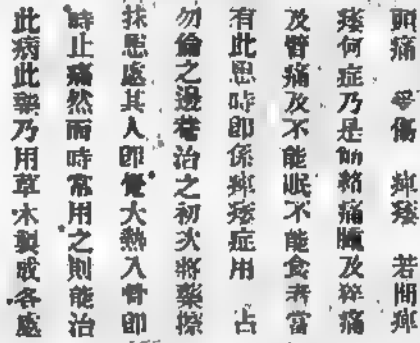 頭痛 受傷 痺痿 若問痺
痿何症乃是筋絡痛腫及骨痛
及臂痛及不能眠不能食者當
有此患時即係痺痿症用 占
勿倫之邊茖治之初次將藥擦
抹患處其人即覺大熱入骨即
時止痛然而時常用之則能治
此病此藥乃用草木製成各處